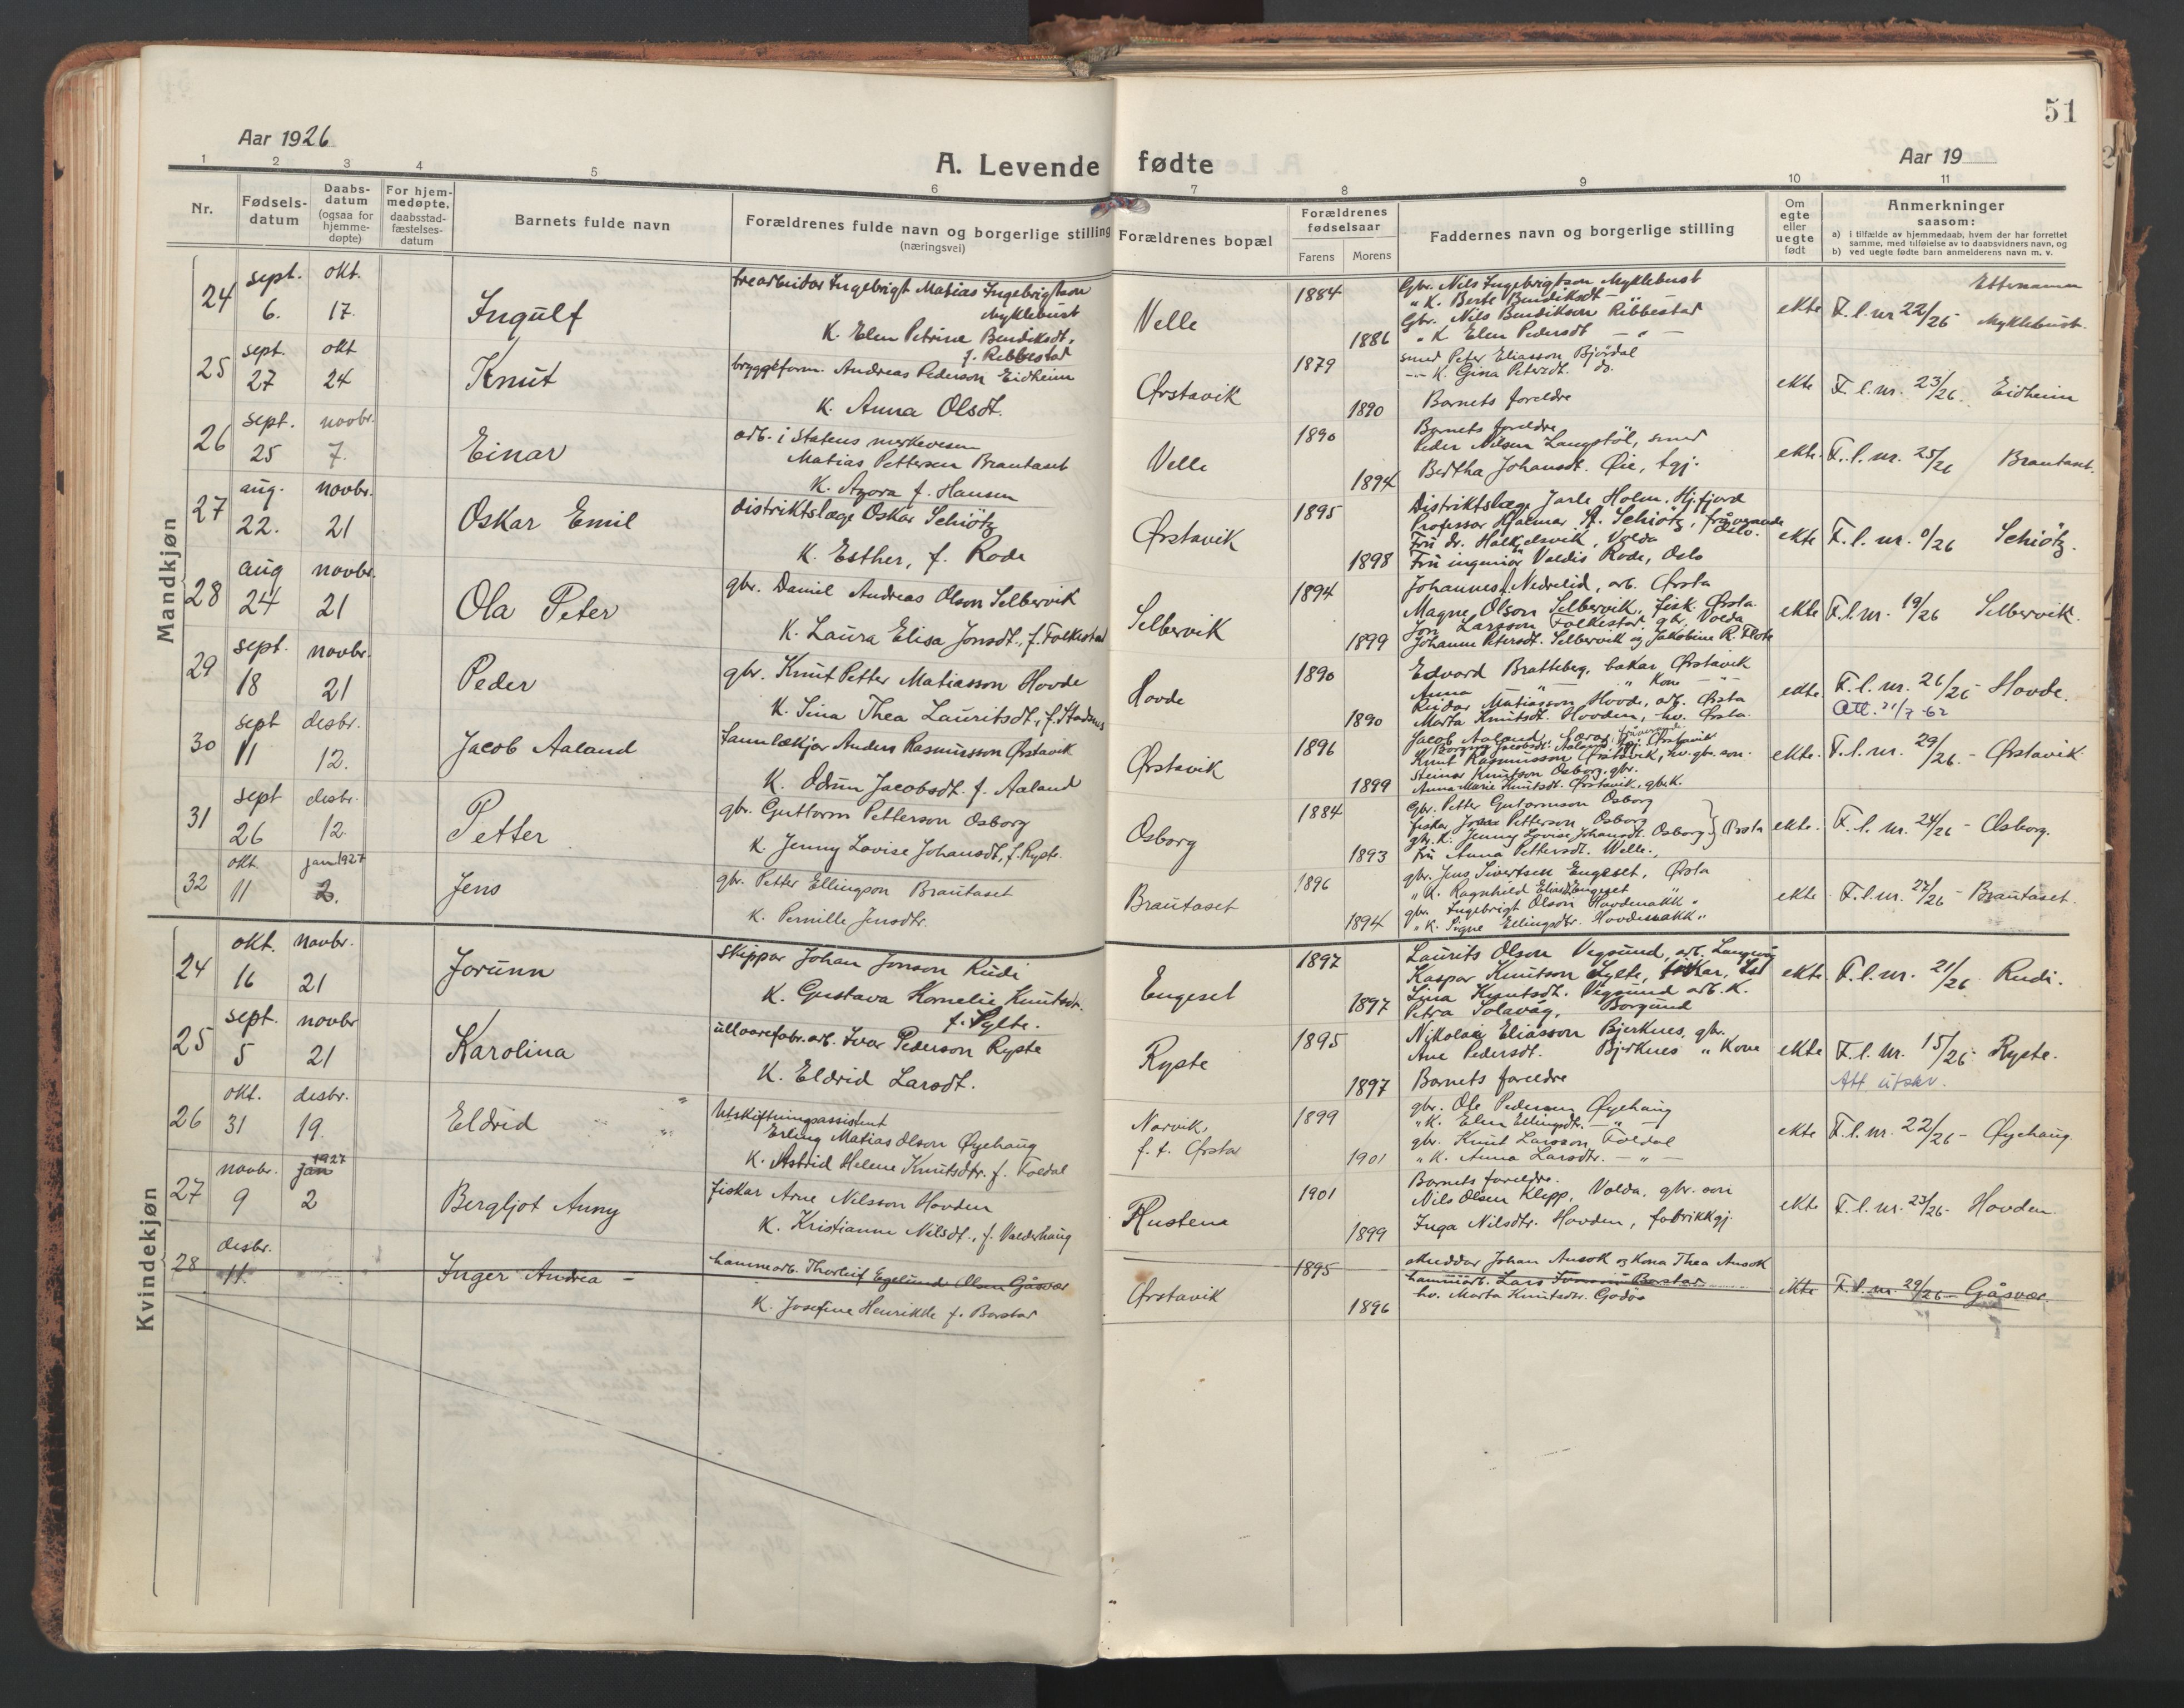 51
Aar 1926
A. Levende fødte
Aar 19
1 2 3 4 5 6 7 8 9 10 11
Nr.
Fødselsdatum
Daabsdatum (ogsaa for hjemmedøpte)
For hjemmedøpte. daabsstadfæstelsesdatum
Barnets fulde navn
Forældrenes fulde navn og borgerlige stilling (næringsvei)
Forældrenes bopæl
Forældrenes fødselsaar
Farens Morens
Faddernes navn og borgerlige stilling
Om egte eller uegte født
Anmerkninger saasom:
a) i tilfælde av hjemmedaab, hvem der har forrettet samme, med tilføielse av to daabsvidners navn, og
b) ved uegte fødte barn anmelderens navn m. v.
Etternamn
Mandkjøn
24 sept. 6. okt. 17. Ingulf
trearbeidar Ingebrigt Matias Ingebrigtson Myklebust
K. Elen Petrine Bendiksdt. f. Rebbestad
Velle 1884 1886
Gbr. Nils Ingebrigtson Myklebust
" K. Berte Bendiksdt —
Gbr. Nils Bendikson Ribbestad
" K Elen Pedersdt — " —
ekte F.l. nr 22/26 - Myklebust.
25 sept. 27 okt 24 Knut
bryggeform. Andreas Pederson Eidheim
K. Anna Olsdt.
Ørstavik 1879 1890
smed Peter Eliasson Bjørdal
K. Gina Petersdt. do.
Barnets foreldre
ekte F.l. nr. 23/26. Eidheim
26 sept. 25 novbr. 7. Einar
arb. i Statens merkevesen
Matias Pettersen Brautaset
K. Agora f. Hansen
Velle 1890 1894
Barnets foreldre
Peder Nilsen Langstöl, smed
Bertha Johansdt. Øie, tgj.
ekte. F.l. nr. 25/26 Brautaset.
27 aug. 22. novbr. 21 Oskar Emil
distriktslæge Oskar Schiötz
K. Esther, f. Rode
Ørstavik 1895 1898
Distriktslæge Jarle Holm, Hj.fjord
Professor Hjalmar A. Schiötz, fråverande Oslo.
Fru dr. Halkjelsvik, Volda
Fru ingeniør Valdis Rode, Oslo
ekte F.l. nr. 0/26 Schiötz.
28 aug 24 novbr. 21 Ola Peter
gbr. Daniel Andreas Olson Selbervik
K. Laura Elisa Jonsdt., f. Folkestad
Selbervik 1894 1899
Johannes Nedrelid, arb. Ørsta
Magne Olson Selbervik, fisk. Ørsta
Jon Larsson Folkestad, gbr. Volda
Johanne Petersdt. Selbervik og Jakobine R. Flote
ekte F.l. nr. 19/26 Selbervik.
29 sept. 18 novbr. 21 Peder
gbr. Knut Petter Matiasson Hovde
K. Sina Thea Lauritsdt., f. Stadsnes
Hovde 1890 1890
Edvard Bratteberg, bakar Ørstavik
Anna " — " Kone — " —
Reidar Matiasson Hovde, arb. Ørsta
Marta Knutsdt. Hovden, hv. Ørsta.
ekte. F.l. nr. 26/26 - Hovde.
Att. 21/7-62
30 sept 11 desbr. 12. Jacob Aaland
tannlækjar Anders Rasmusson Ørstavik
K. Odrun Jacobsdt. f. Aaland
Ørstavik 1896 1899
Knut Rasmusson Ørstavik, hv. gbr. son.
Steinar Knutson Osborg, gbr.
Anna Marie Knutsdt. Ørstavik, gbr.K.
ekte. F.l. nr. 29/26. - Ørstavik
31 sept 26 desbr. 12. Petter
gbr. Guttorm Petterson Osborg
K. Jenny Lovise Johansdt, f. Ryste.
Osborg 1884 1893
Gbr. Petter Guttormson Osborg
fiskar Petterson, Osborg
gbr. K. Jenny Lovise Johansdt. Osborg } Ørsta
fru Anna Pettersdt. Welle.
ekte. F.l. nr. 24/26 - Osborg.
32 okt. 11 jan 1927 2. Jens
gbr. Petter Ellingson Brautaset
K. Pernille Jensdtr.
Brautaset 1896 1894
gbr. Jens Sivertsen Engeset, Ørsta
" K. Ragnhild Eliasd. Engeset "
gbr. Ingebrigt Olson Hovdenakk "
" K. Signe Ellingsdtr. Hovdenakk "
ekte. F.l. nr. 27/26 - Brautaset.
Kvindekjøn
24 okt. 16 novbr. 21 Jorunn
skippar Johan Jonson Rudi
K. Gustava Kornelie Knutsdt. f. Sylte.
Engeset 1897 1897
Laurits Olson Vegsund, arb. Langevåg
Kaspar Knutson Sylte, fiskar,
Lina Knutsdt. Vegsund arb. K.
Petra Solavåg, Borgund
ekte. F.l. nr. 21/26 Rudi.
25 sept. 5 novbr 21 Karolina
ullvarefabr. arb. Ivar Pederson Ryste
K. Eldrid Larsdt.
Ryste 1895 1897
Nikolai Eliasson Bjerknes, gbr.
Ane Pedersdt. Bjerknes " Kone
Barnets foreldre
ekte F.l. nr. 15/26 - Ryste.
Att utskr.
26 okt. 31 desbr. 19. Eldrid
Utskiftningsassistent
Erling Matias Olson Øyehaug
K. Astrid Helene Knutsdtr. f. Foldal
Narvik, f. t. Ørsta 1899 1901
gbr. Ole Pedersen Øyehaug
" K. Elen Ellingsdt. — " —
gbr. Knut Larsson Foldal
" K. Anna Larsdtr. — " —
ekte F.l. nr. 22/26 - Øyehaug.
27 novbr. 9 jan 1927 2 Bergljot Anny
fiskar Arne Nilsson Hovden
K. Kristianne Nilsdt., f. Valderhaug
Rustene 1901 1899
Barnets foreldre.
Nils Olsen Klepp, Volda, gbr. son
Inga Nilsdtr. Hovden, fabrikkgj.
ekte F.l. nr. 23/26 - Hovden
28 desbr. 11. Inger Andrea -
Thorleif Egelund Olsen Gåsvær
K. Josefine Henrikke f. Barstad
Ørstavik 1895 1896
skreddar Johan Ausok og Kona Thea Ausok
Lars Barstad
hv. Marta Knutsdtr. Godø
ekte F.l. nr 29/26 - Gåsvær.